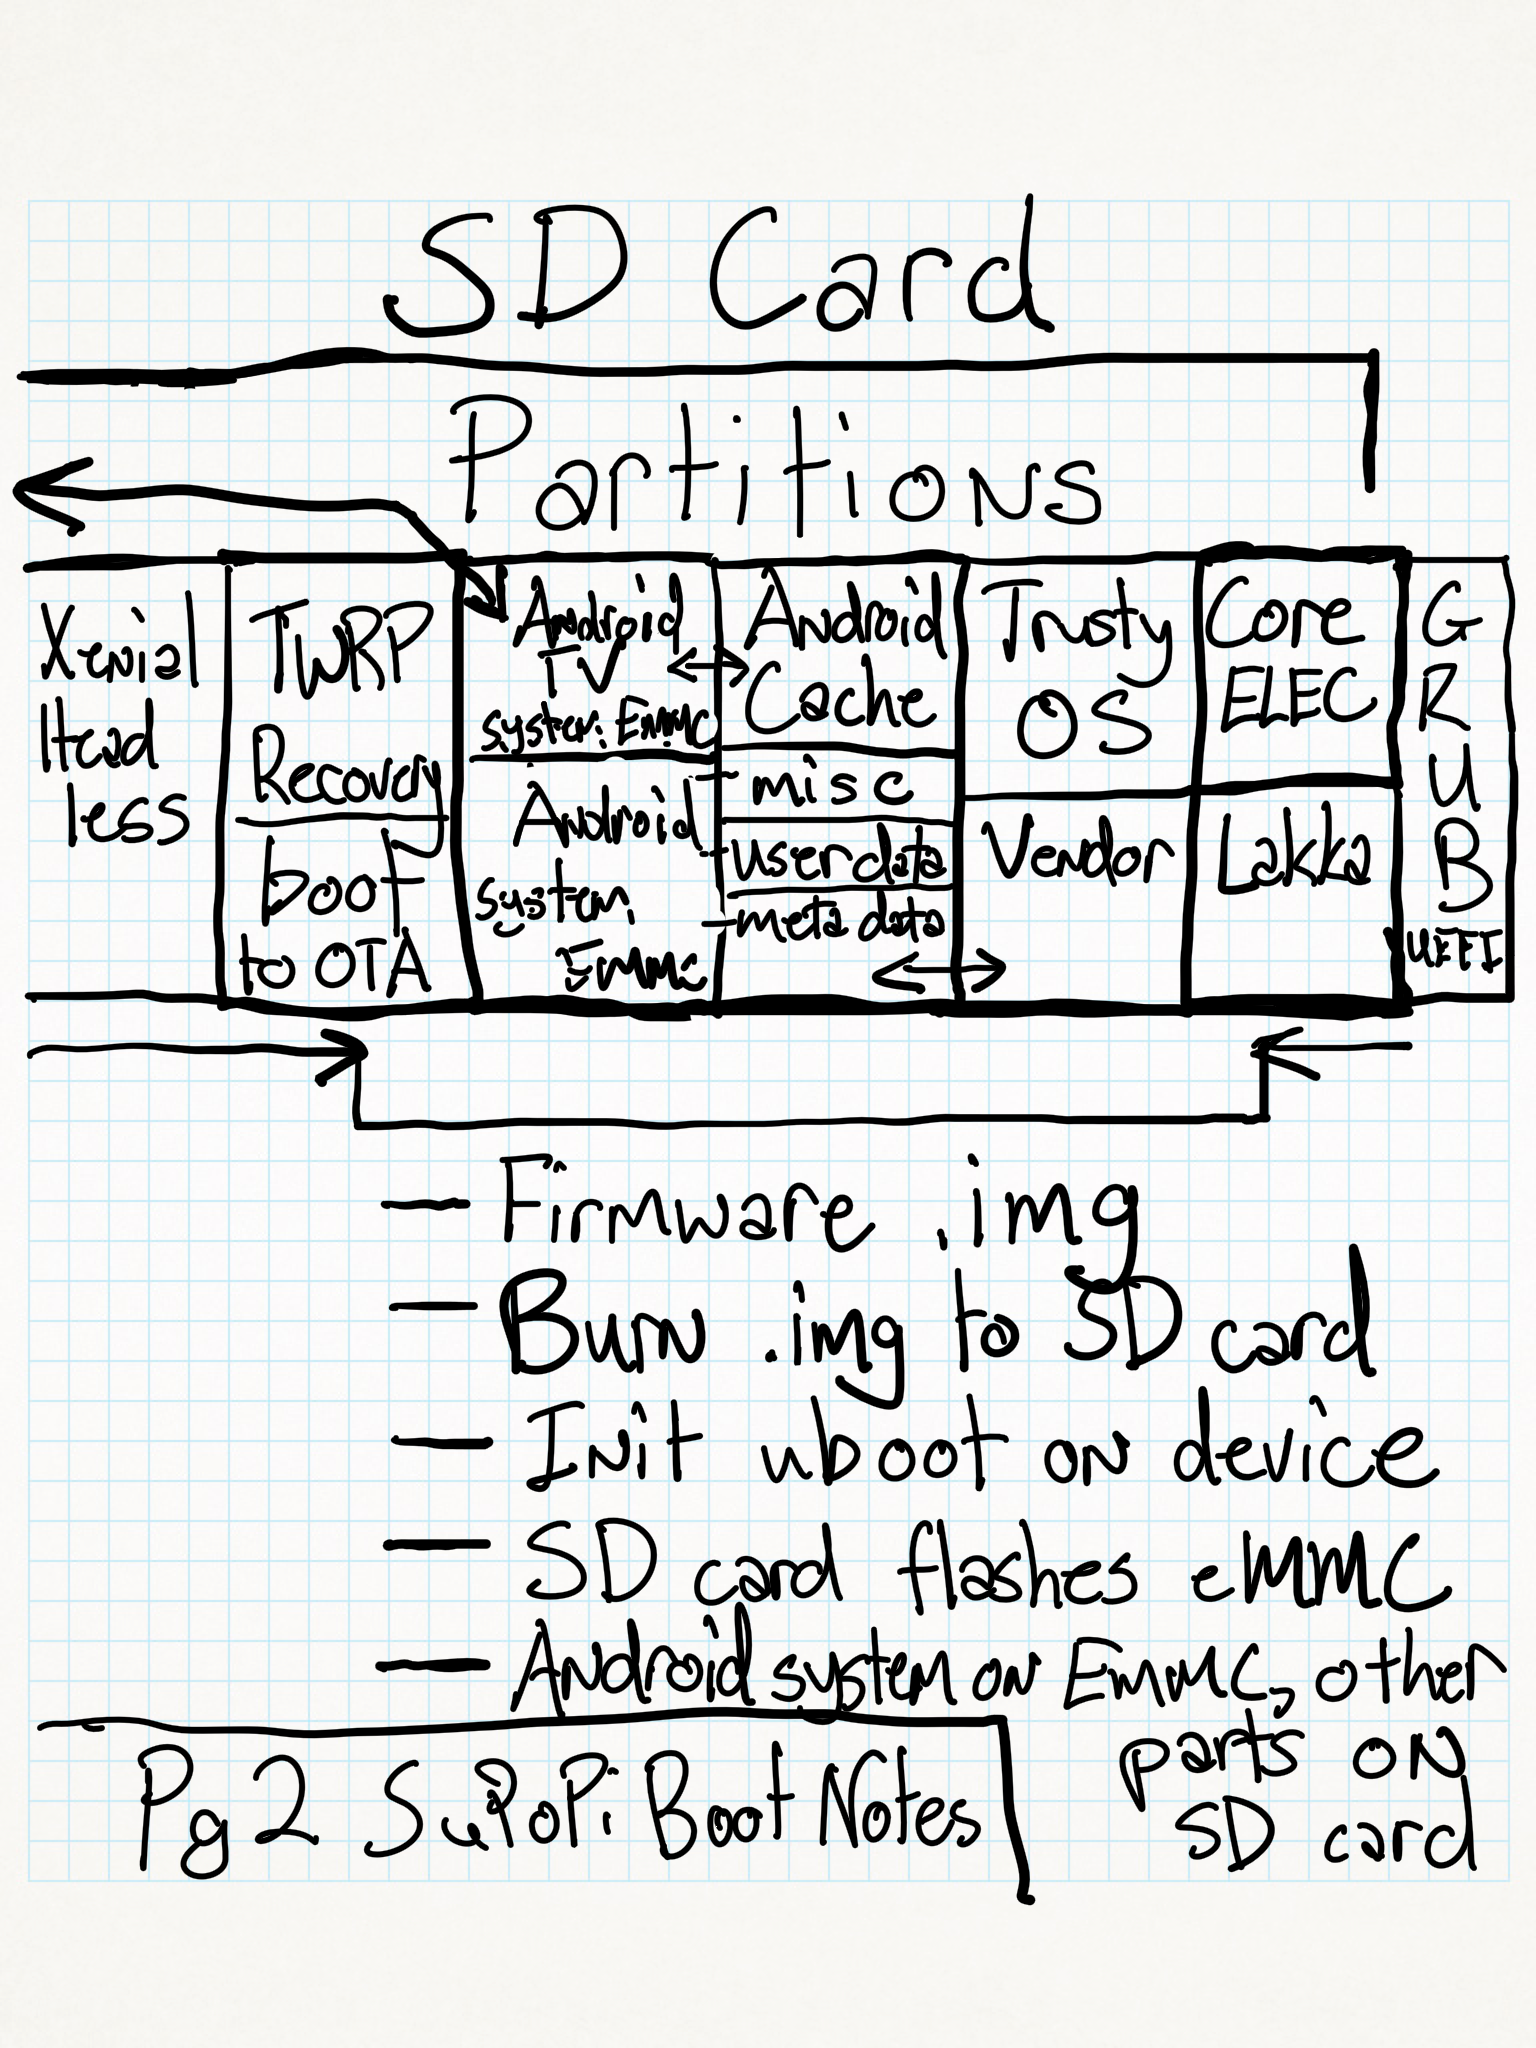 SD Card
Partitions
Xenial
Head
less
TWRP
Recovery
boot
to OTA
Android
TV
system: EMMC
Android
system:
EMMC
Android
Cache
misc
userdata
meta data
Trusty
OS
Vendor
Core
ELEC
Lakka
G
R
U
B
UEFI
— Firmware .img
— Burn .img to SD card
— Init uboot on device
— SD card flashes eMMC
— Android system on EmmC, other
parts on
SD card
Pg 2 SuPoPi Boot Notes